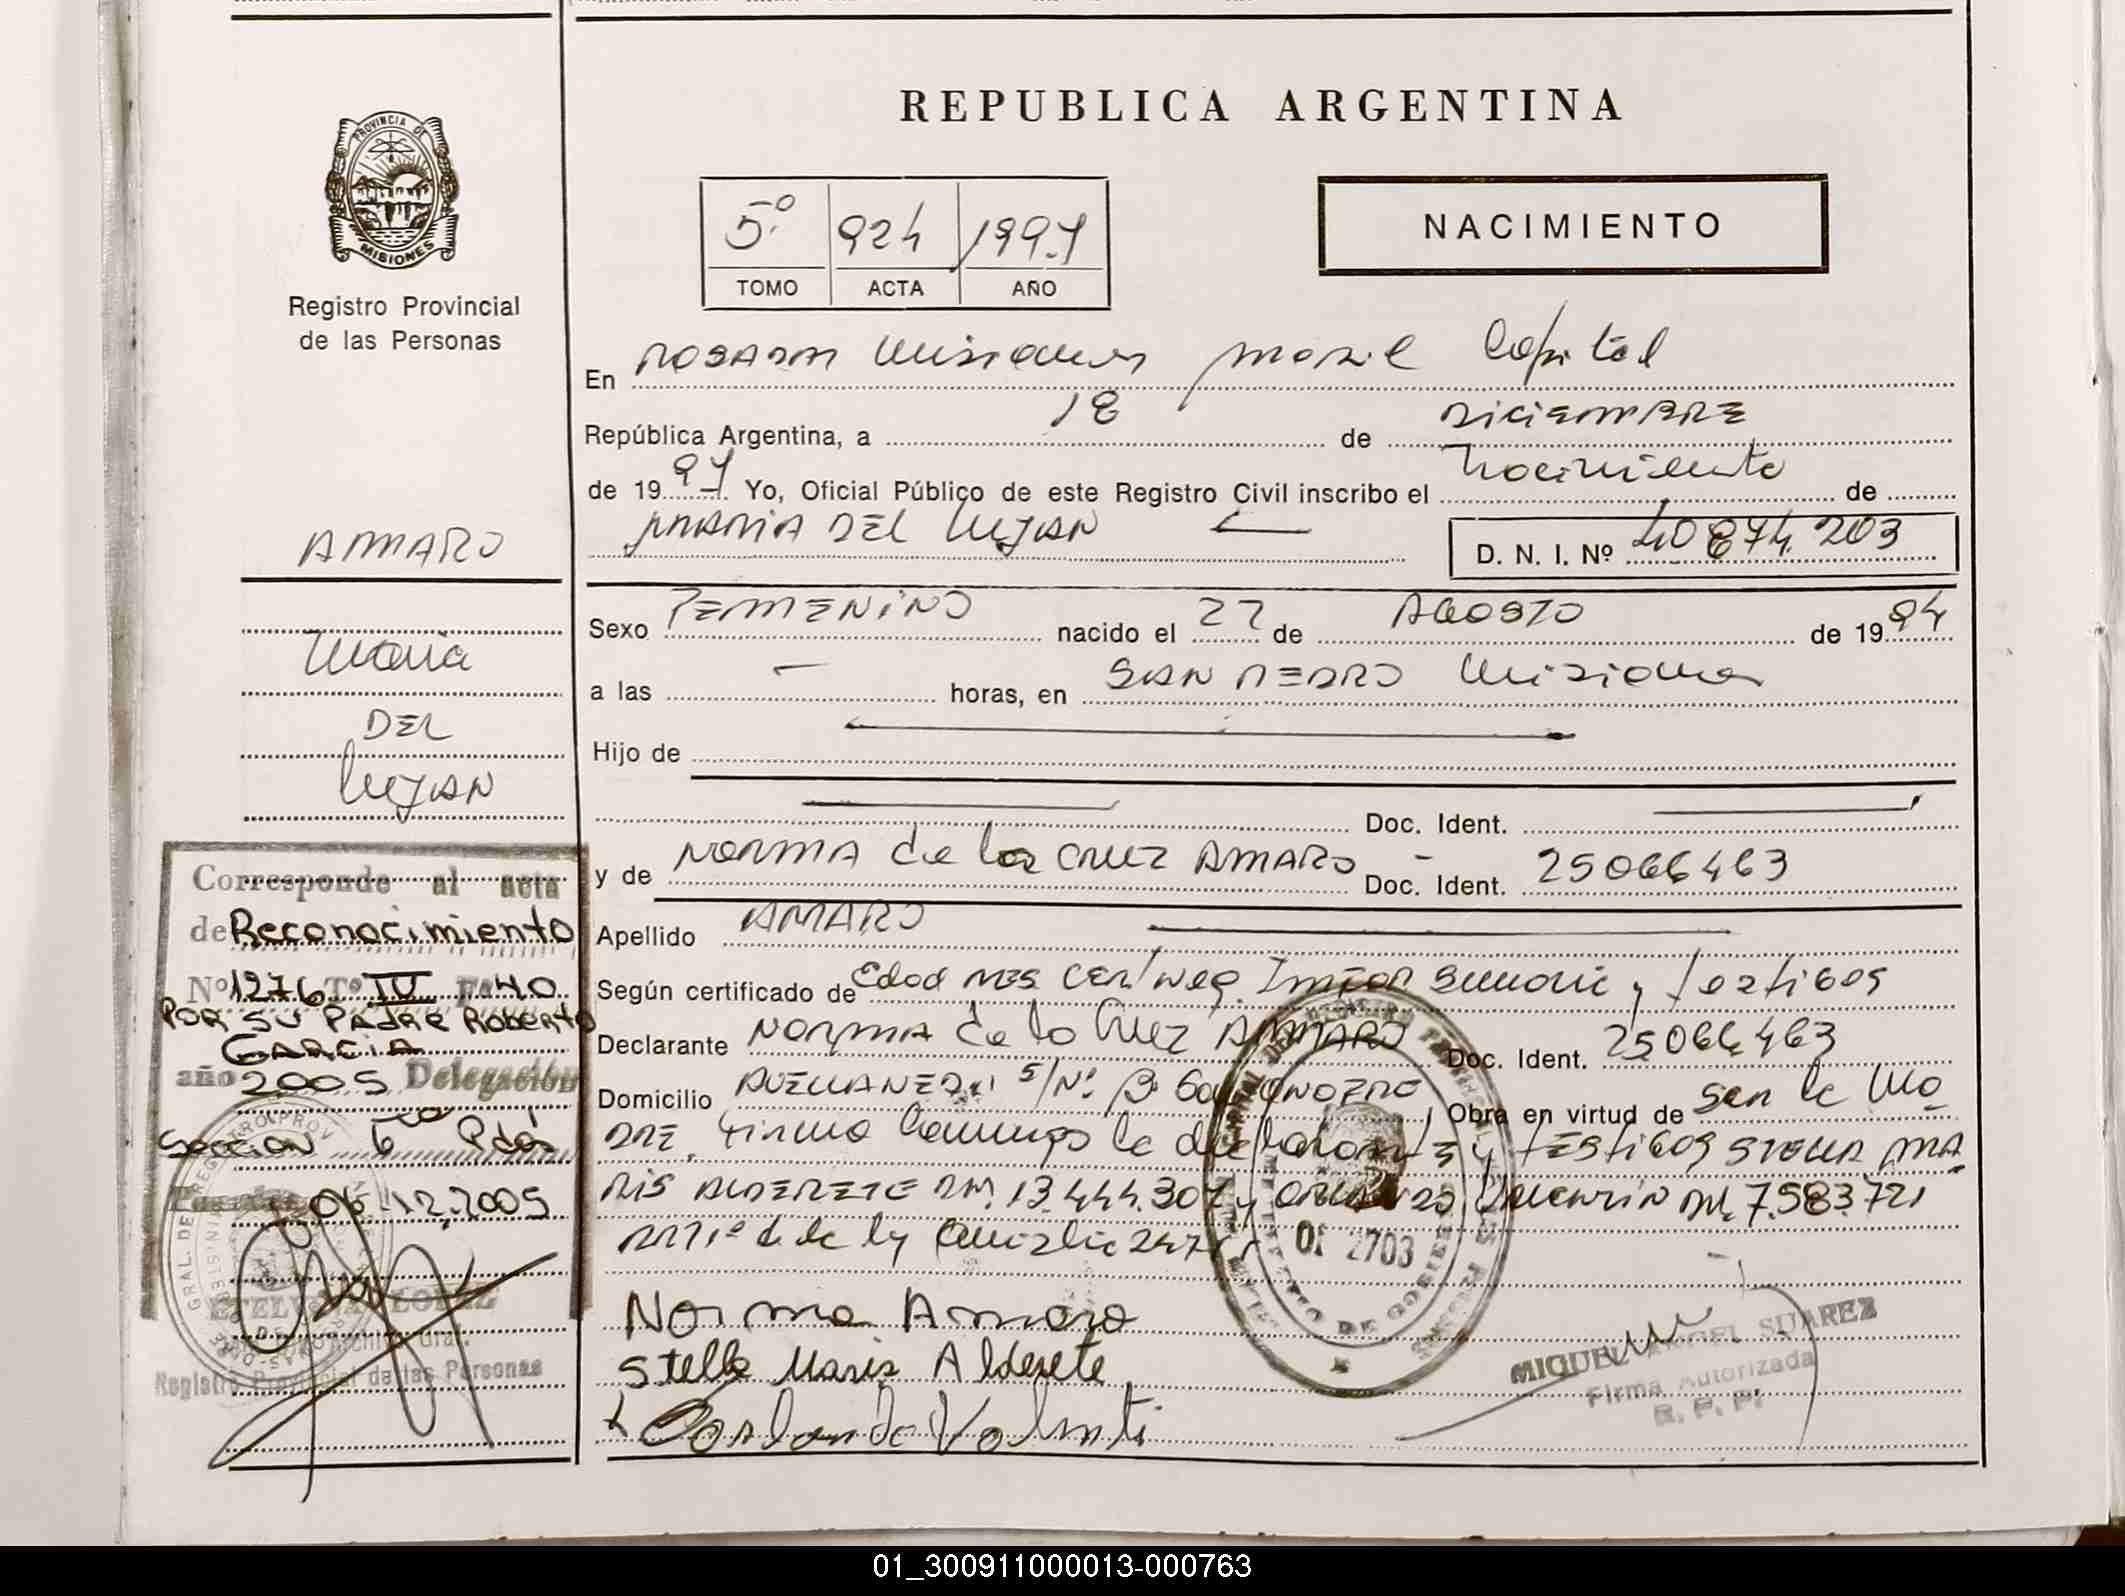 REPUBLICA ARGENTINA
PROVINCIA DE
MISIONES
Registro Provincial
de las Personas
5º 924 1997
TOMO ACTA AÑO
NACIMIENTO
En Misiones Movil Capital
República Argentina, a 18 de DICIEMBRE
de 1997 Yo, Oficial Público de este Registro Civil inscribo el Nacimiento de
MARIA DEL LUJAN D. N. I. Nº 40874.203
AMARO
Maria
DEL
LUJAN
Sexo FEMENINO nacido el 27 de AGOSTO de 1994
a las - horas, en SAN PEDRO Misiones
Hijo de
Doc. Ident.
y de NORMA de la CRUZ AMARO - Doc. Ident. 25066463
Apellido AMARO
Según certificado de Edad Neg. y testigos
Declarante NORMA de la Cruz AMARO Doc. Ident. 25066463
Domicilio AVELLANEDA S/Nº Bº Obra en virtud de Ser la MA
DRE. Firma conmigo la declarante y TESTIGOS STELLA MA
RIS ALDERETE DNI. 13.444.307 y ORLANDO DNI. 7.583.721
de la
Norma Amaro
Stella Maris Alderete
Orlando
DE GOBIERNO
MIGUEL ANGEL SUAREZ
Firma Autorizada
R. P. P.
Corresponde al acta
de Reconocimiento
Nº 1276 Tº IV Fº 40
POR SU PADRE ROBERTO
GARCIA
año 2005 Delegación
Seccion 6ª Pdas
Posadas 06.12.2005
LOPEZ
Registro Provincial de las Personas
01_300911000013-000763